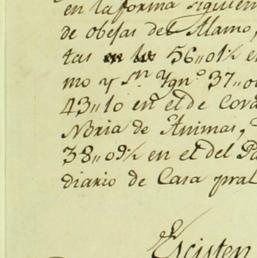 en la forma siguien
de obejas del Alamo,
tas en los 56,,01½ en
mo y Sn Ygno 37,,0
43,,10 en el de Cor
Noria de Animas,
38,,09½ en el del Pa
diario de Casa pral
Existen